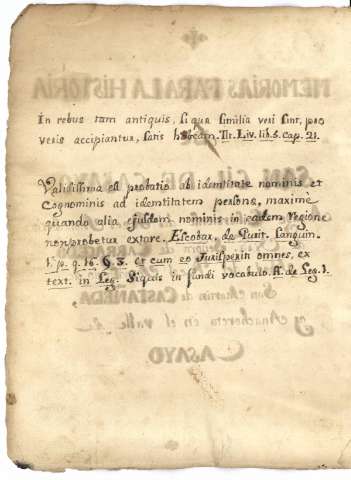 In rebus tam antiquis, si qua similia veri sint, pro
veris accipiantur, satis habeam. Tit. Liv. lib. 5. cap. 21.
Validissima est probatio ab identitate nominis et
Cognominis ad idemtitatem personæ, maxime
quando alia ejusdem nominis in eadem regione
non probetur extare. Escobar, de Purit. sanguin.
1. p. q. 16. §. 3. et cum eo Jurisperiti omnes, ex
text. in Leg. Siquis in fundi vocabulo. ff. de Leg. 1.